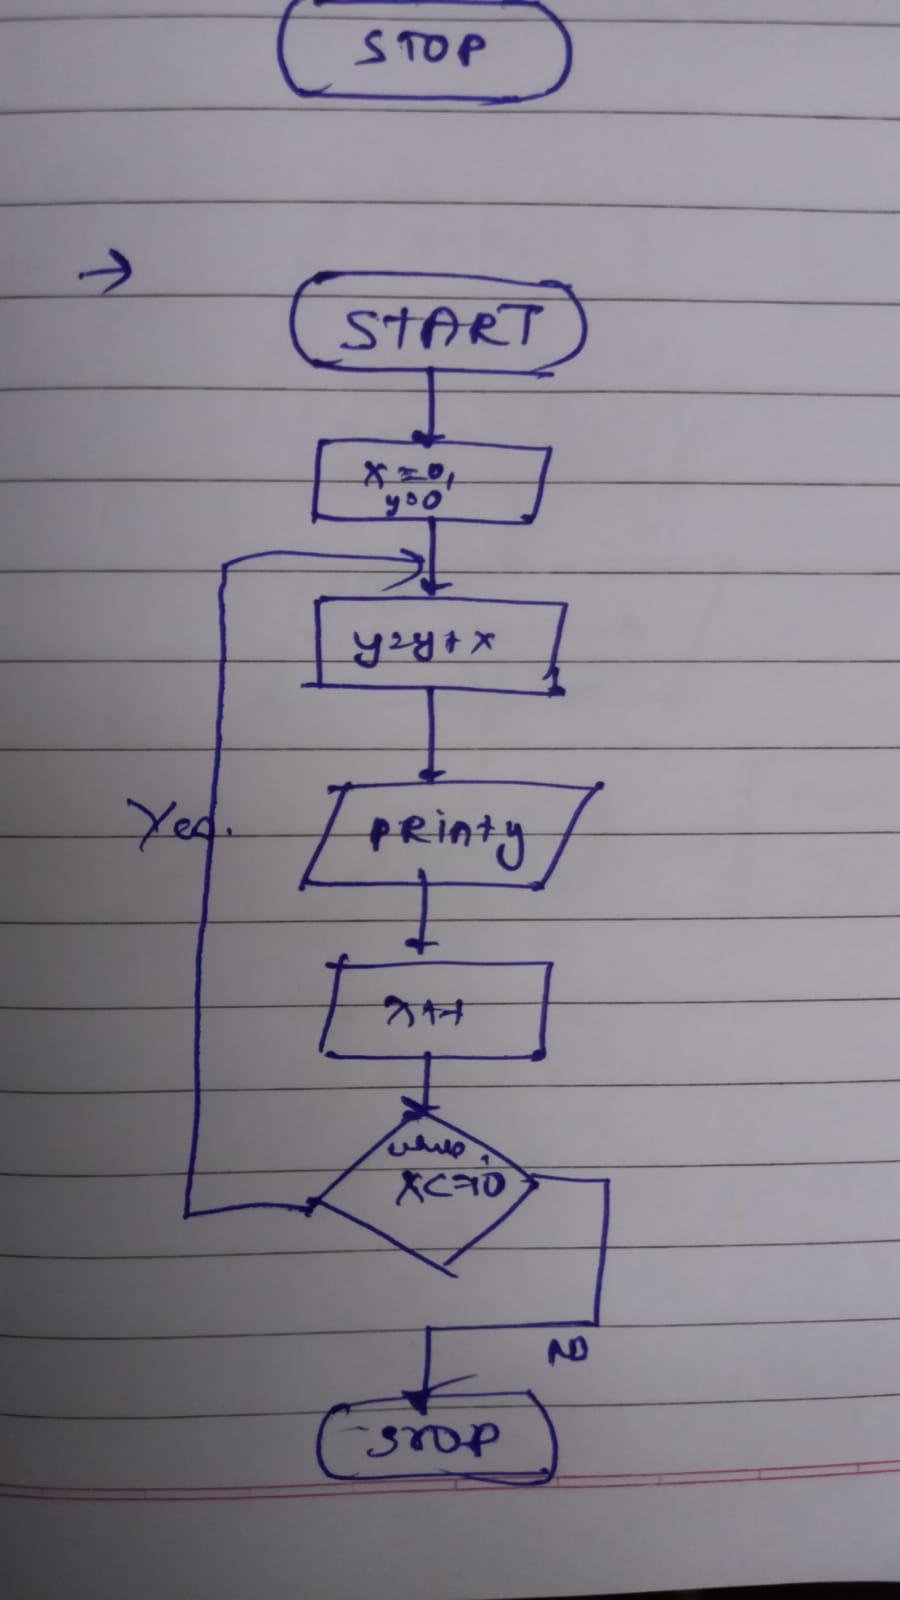 STOP
→
START
x=0,
y=0
y=y+x
PRinty
Yes.
x++
while
x<=10
NO
STOP